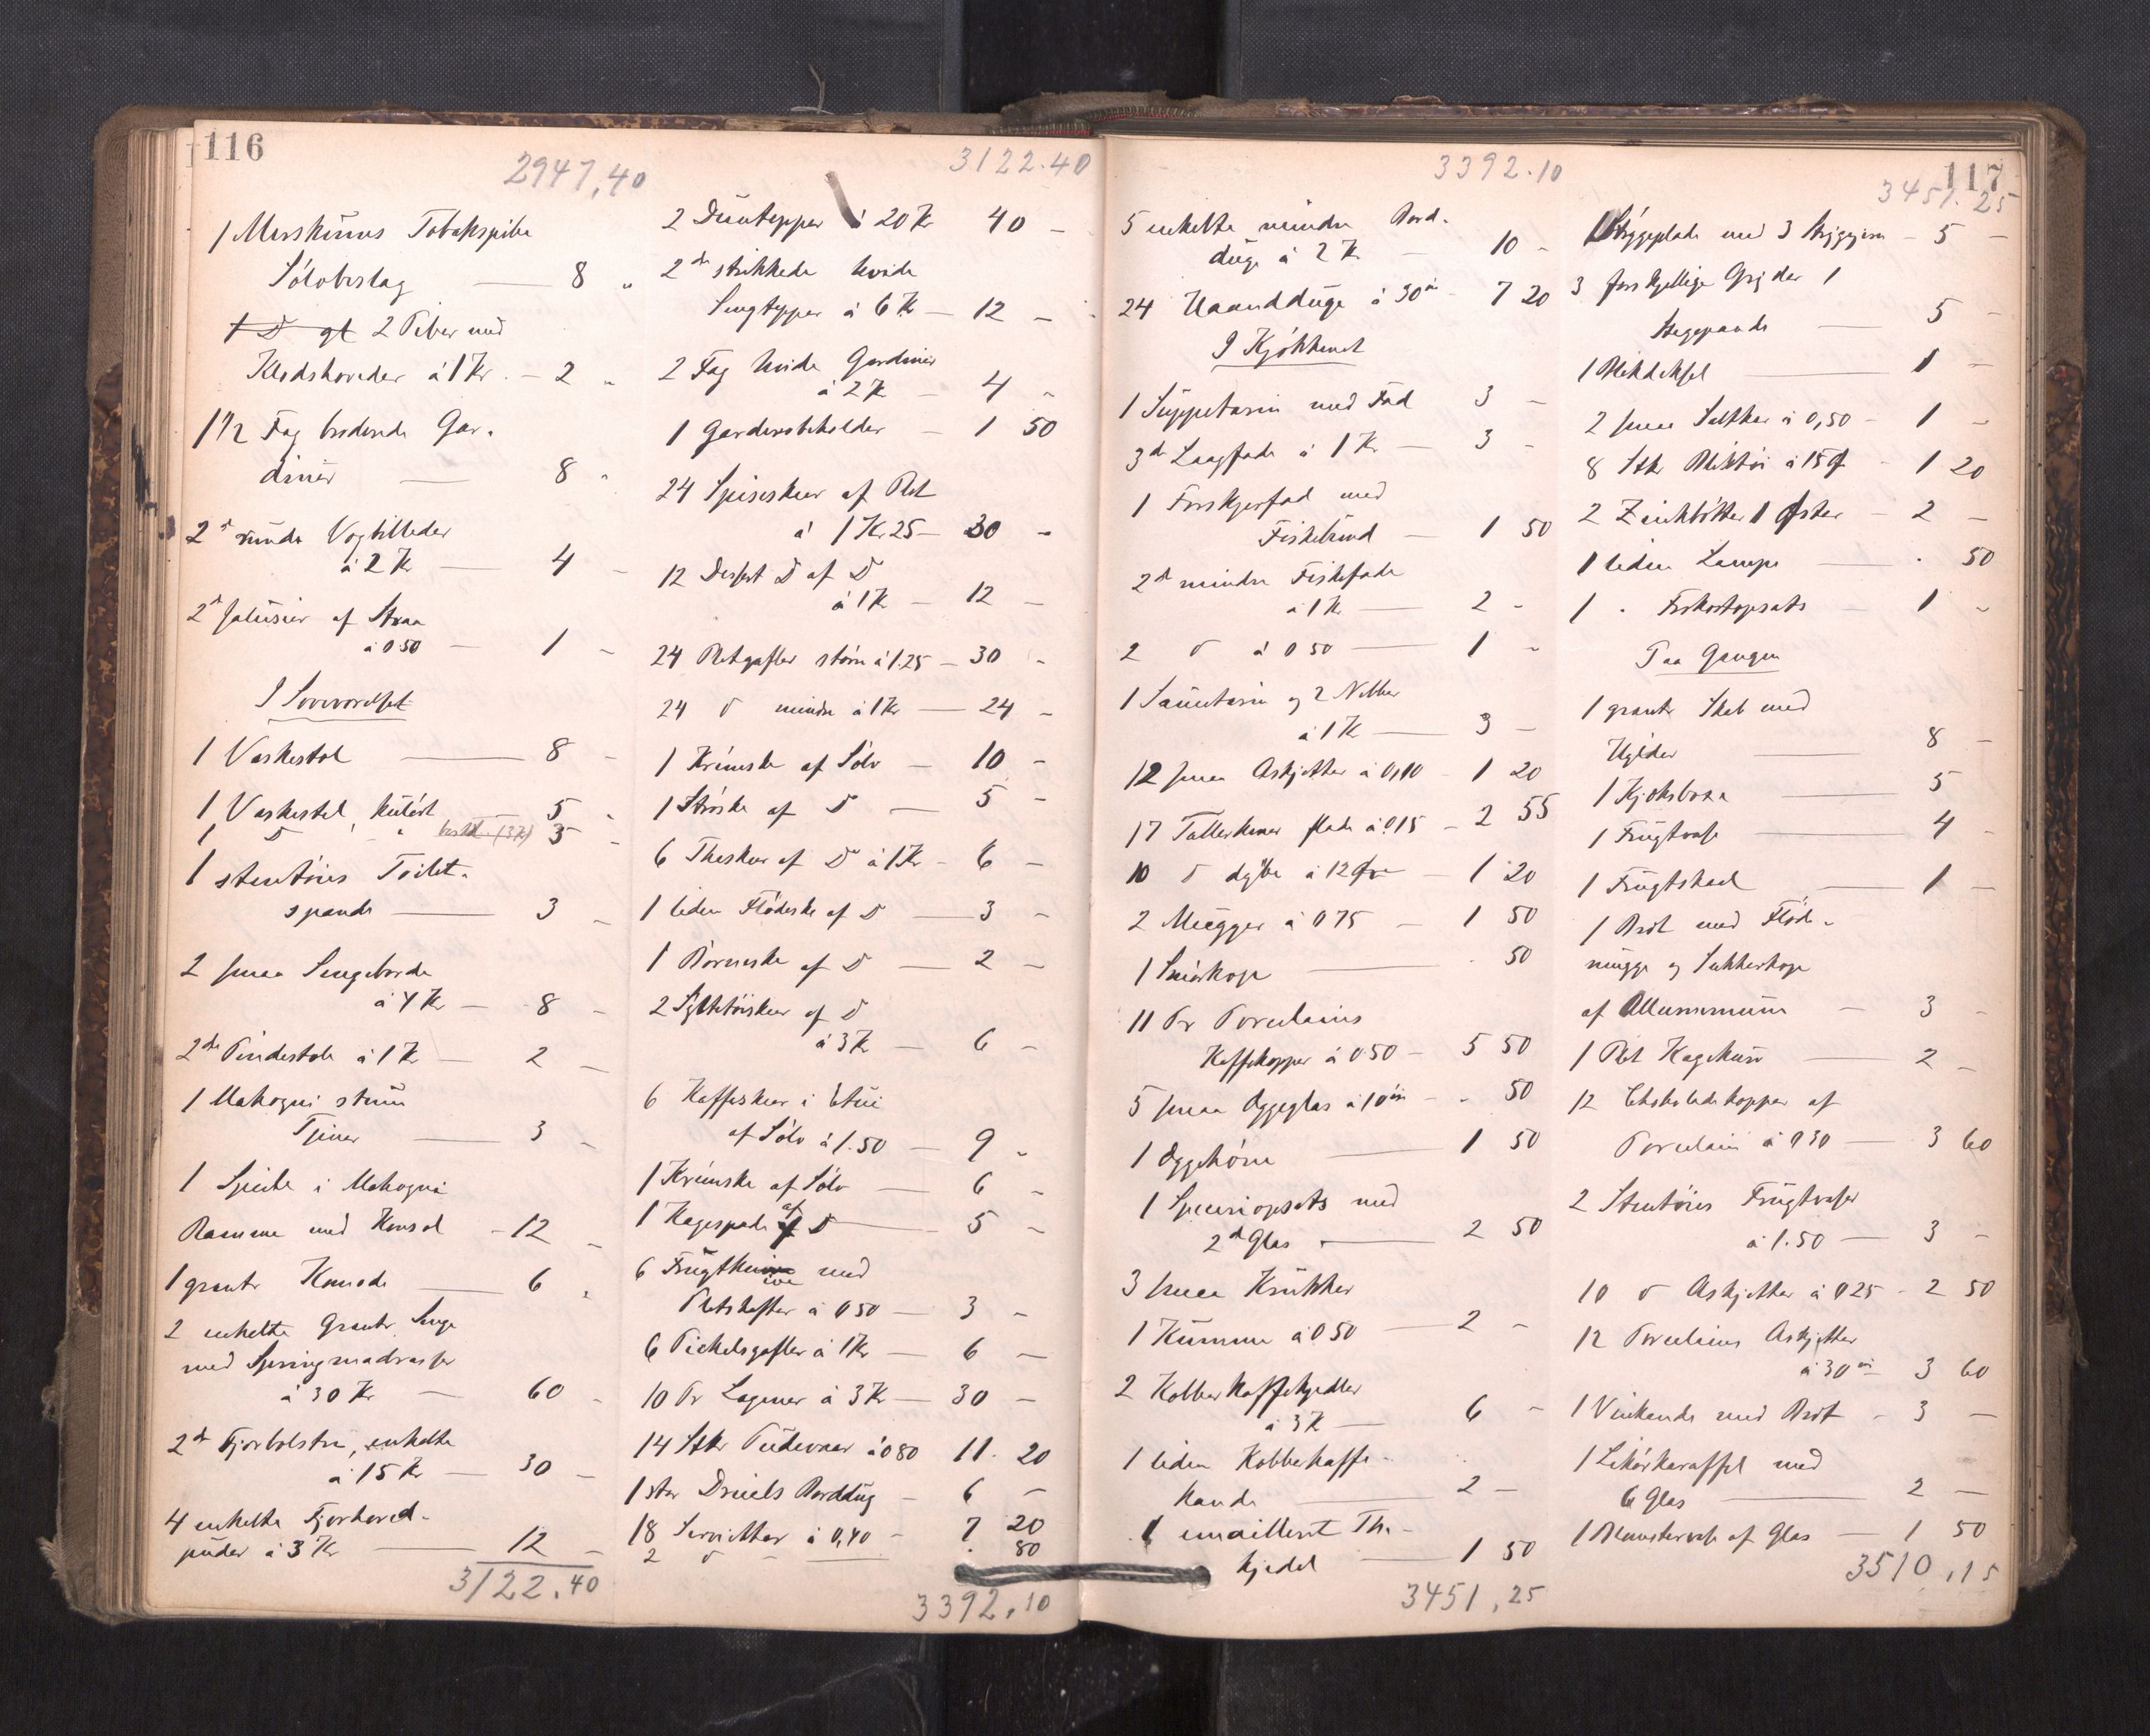 116
2947,40
1 Merskums Tobakspibe
Sølvbeslag — 8 "
1 D gt 2 Piber med
Klædshoveder á 1 Kr. — 2 "
1 1/2 Fag broderede Gar-
diner — 8 "
2 runde Vægbilleder
á 2 Kr — 4 -
2 Jalusier af Straa
á 0 50 — 1 -
I Soveværelset
1 Vaskestol — 8 -
1 Vaskestel, kulørt — 5 -
1 D " (3 Kr) 3 -
1 stentøies Toilet-
spand — 3 -
2 smaa Sengeborde
á 4 Kr — 8 -
2de Pindestole á 1 Kr — 2 -
1 Mahogni stum
Tjener — 3 -
1 Speile i Mahogni
Ramme med Konsol - 12 -
1 grantr Komode — 6 "
2 enkelte Grantr Senge
med Springmadrasser
á 30 Kr — 60 -
2de Fjørbolstre, enkelte
á 15 Kr — 30 -
4 enkelte Fjørhoved-
puder á 3 Kr — 12 -
3122.40
3122.40
2 Duntepper á 20 Kr 40 -
2de strikkede hvide
Sengtepper á 6 Kr — 12 -
2 Fag hvide Gardiner
á 2 Kr — 4 -
1 Garderobeholder — 1 50
24 Spiseskeer af Plet
á 1 Kr 25 — 30 -
12 Dessert D af D
á 1 Kr — 12 -
24 Pletgafler større á 1.25 — 30 -
24 D mindre á 1 Kr — 24 -
1 Krémske af Sølv — 10 -
1 Strøske af D — 5 -
6 Theskeer af D á 1 Kr - 6 -
1 liden Flødeske af D — 3 -
1 Barneske af D — 2 -
2 Syltetøiskeer af D
á 3 Kr — 6 -
6 Kaffeskeer i Etui
af Sølv á 1.50 — 9 "
1 Krémske af Sølv — 6 -
1 Kagespade af D — 5 -
6 Frugtknive med
Pletskafter á 0 50 — 3 -
6 Pickelsgafler á 1 Kr — 6 -
10 Pr Lagener á 3 Kr — 30 -
14 Stk Pudevaar á 0 80 11. 20
1 stor Dreiels Borddug — 6 -
18 Servietter á 0,40 - 7 20
2 D - — . 80
3392,10
3392.10
5 enkelte mindre Bord-
duge á 2 Kr — 10 -
24 Haandduge á 30 ør - 7 20
I Kjøkkenet
1 Suppeterin med Fad 3 -
3de Laagfade á 1 Kr — 3 -
1 Ferskjerfad med
Fiskebund — 1 50
2de mindre Fiskefade
á 1 Kr — 2 -
2 D á 0 50 — 1 -
1 Sauseterin og 2 Nebber
á 1 Kr — 3 -
12 smaa Asjetter á 0,10 - 1 20
17 Tallerkener flade á 0 15 - 2 55
10 D dybe á 12 Øre — 1 20
2 Mugger á 0 75 — 1 50
1 Smørkop — . 50
11 Pr Porcelains
Kaffekopper á 0 50 — 5 50
5 smaa Æggeglas á 10 ør - . 50
1 Æggehøne — 1 50
1 Speceriopsats med
2de Glas — 2 50
3 smaa Krukker
1 Kumme á 0 50 — 2 -
2 Kobber Kaffekjedler
á 3 Kr — 6 -
1 liden Kobberkaffe-
kande — 2 -
1 emailleret The-
kjedel — 1 50
3451,25
117
3451.25
1 Strygeplade med 3 Strygejern — 5 -
3 forskjellige Gryder 1
Stegepande — 5 -
1 — 1 -
2 smaa Saltkar á 0,50 - 1 -
8 Stk Bliktøi á 15 Ø - 1 20
2 Zinkbøtter 1 Øster - 2 -
1 liden Lampe — . 50
1 " Frokostopsats — 1 -
Paa Gangen
1 grantr Skab med
Hylder — 8 -
1 Kjøksbænk — 5
1 Frugtvase — 4 -
1 Frugtskaal — 1 -
1 Bret med Fløde-
mugge og Sukkerkop
af Alluminium — 3 -
1 Plet Kagekurv — 2 -
12 Chokoladekopper af
Porcelain á 0 30 — 3 60
2 Stentøies Frugtvaser
á 1.50 — 3 -
10 D Askjetter á 0 25 - 2 50
12 Porcelains Askjetter
á 30 ør - 3 60
1 Vinkande med Bret - 3 -
1 Likørkaraffel med
6 Glas — 2 -
1 Blomstervase af Glas — 1 50
3510,15